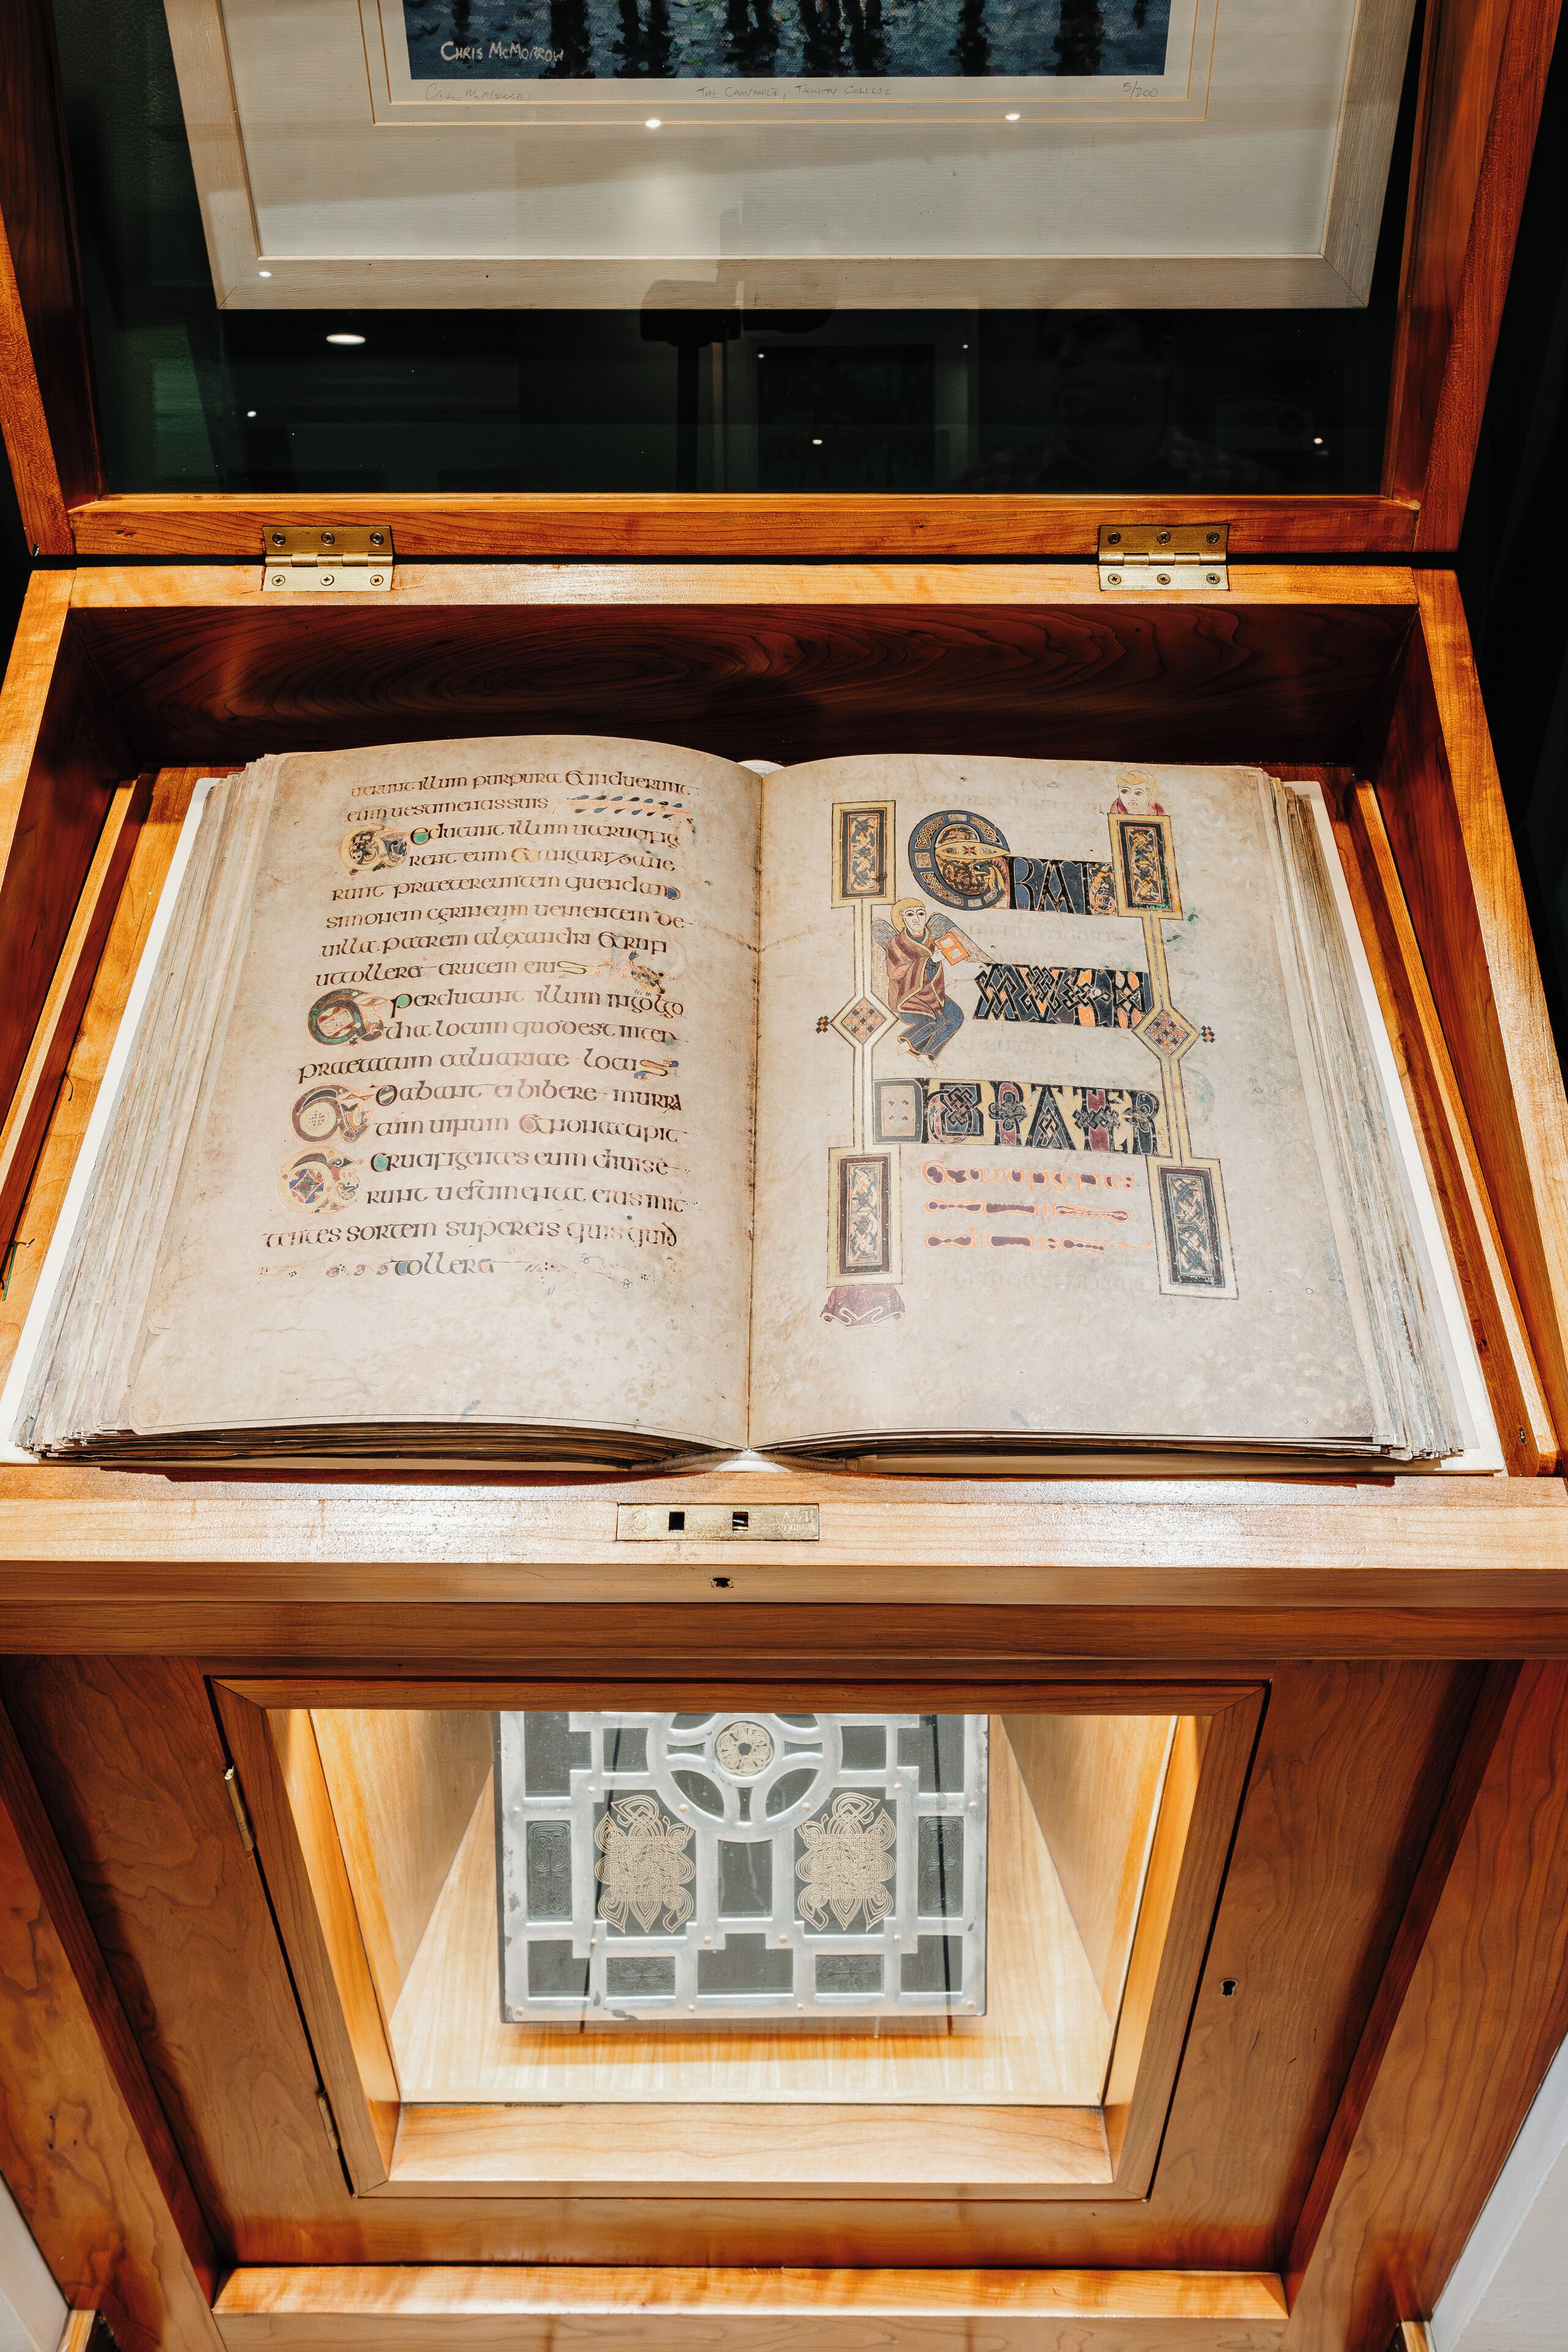 CHRIS McMORROW
Chris McMorrow The Campanile, Trinity College 5/200
uerunt illum purpura & induerunt
eum uestimentis suis
Et educunt illum ut crucifig
erent eum & angarizaue
runt praetereuntem quendam
simonem cyrineum uenientem de
uilla patrem alexandri & rufi
ut tolleret crucem eius
Et perducunt illum in golgo
tha locum quod est inter
praetatum caluariae locus
Et dabant ei bibere murra
tum uinum & non accipit
Et crucifigentes eum diuise
runt uestimenta eius mit
tentes sortem super eis quis quid
tolleret
ERAT